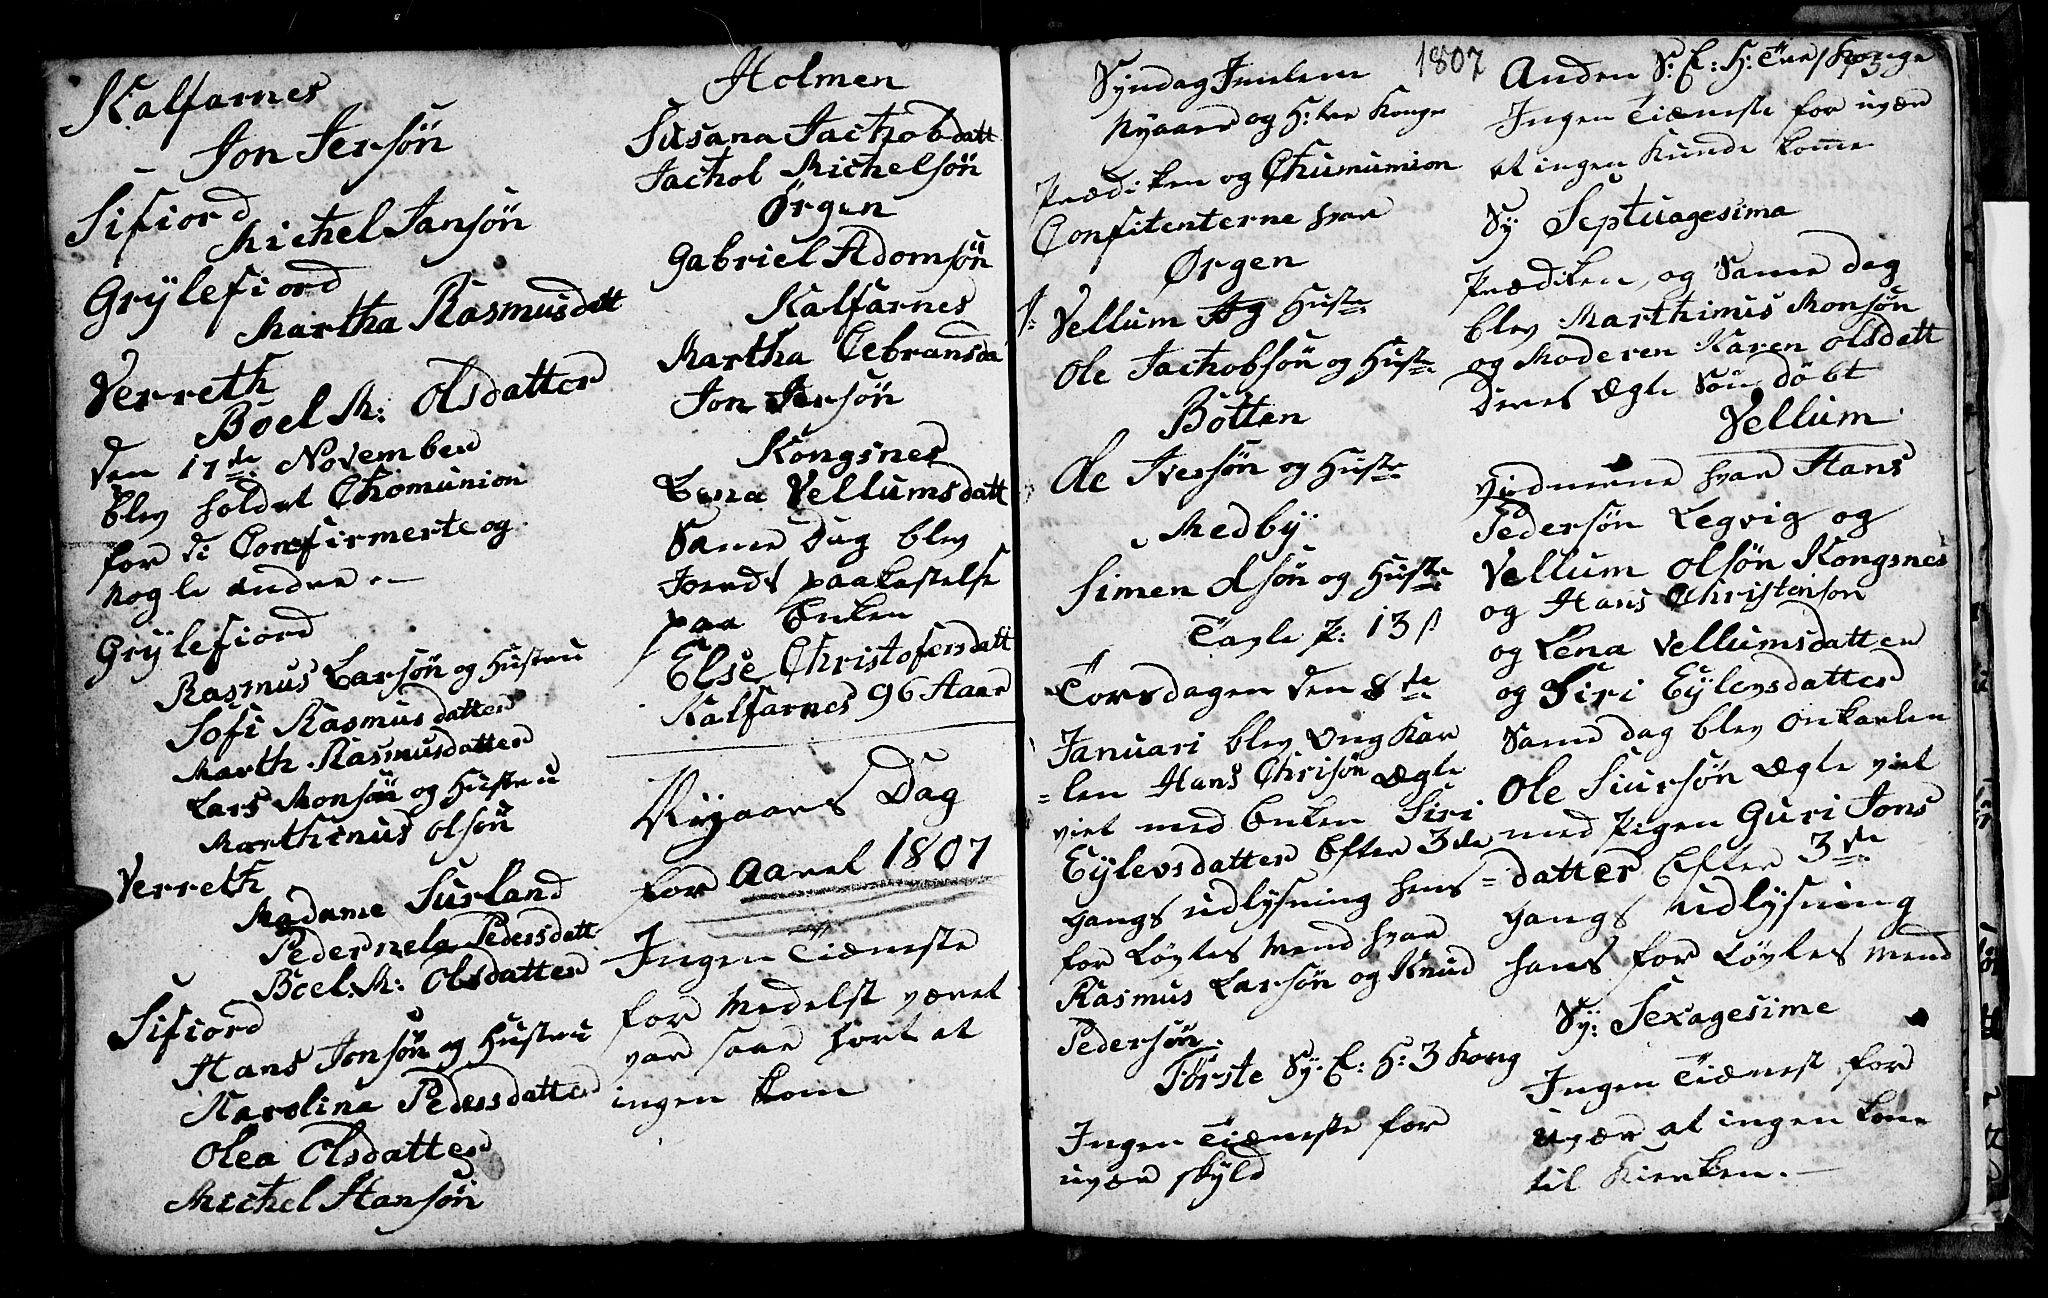 Kalfarnes
Jon Jersön
Sifiord
Michel Jansön
Grÿlefiord
Martha Rasmusdatt
Verreth
Boel M: Olsdatter
den 17de November
blev holdet Chomunion
for di Confirmerte og
Nogle andre
Grÿlefiord
Rasmus Larsön og Hustru
Sofi Rasmusdatter
Marth Rasmusdatter
Lars Monsön og Hustru
Marthinus Olsön
Verreth
Madame Surland
Pedernela Pedersdatt
Boel: M: Olsdatter
Sifiord
Hans Jonsön og Hustru
Karolina Pedersdatter
Olea Olsdatter
Michel Hansön
Holmen
Susana Jachobdatt
Jachob Michelsön
Ørgen
Gabriel Adomsön
Kalfarnes
Martha Cebransda
Jon Iversön
Kongsnes
Lena Vellumsdatt
Same Dag blev
Jords paakastelse
paa Enken
Else Christofersdatt
Kalfarnes 96 Aaar
Nyaars Dag
for Aaret 1807
Ingen Tiæneste
for Medelst været
var saae hort at
ingen kom
1807
Syndag Imelem
Nyaar og H: tre Konge
Prædiken og Chumumion
Confitenterne hvar
Ørgen
Vellum Ag Huste
Ole Jachobsön og Huste
Botten
Ole Iversön og Huste
Medbÿ
Simen Olsön og Huste
Tavle P: 13 ß
Torsdagen den 8de
Januari blev Ung Kar
=len Hans Chrisön Ægte
viet med Enken Siri
Eylevsdatter Efter 3de
gangs udlysning hens
for Löftes Mend hvar
Rasmus Larsön og Knud
Pedersön.
Förste Sy. E: H: 3 Kong
Ingen Tiæneste for
uvær skyld
Anden S: E: H: Tre Konge
Ingen Tiæneste for uvær
at ingen Kunde kome
Sy Septuagesima
Prædiken, og Same dag
blev Marthinus Monsön
og Moderen Karen Olsdatt
Deres Ægte Sön döbt
Vellum
vidnerne hvar Hans
Pedersön Legvig og
Vellum Olsön Kongsnes
og Hans Christensön
og Lena Vellumsdatter
og Siri Eylevsdatter
Same dag blev Onkarlen
Ole Siursön Ægte viet
med Pigen Guri Jons
=datter Efter 3de
gangs udlysning
hans for Löftes mend
Sy: Sexagesime
Ingen Tiænest for
uvær at ingen kom
til Kierken.